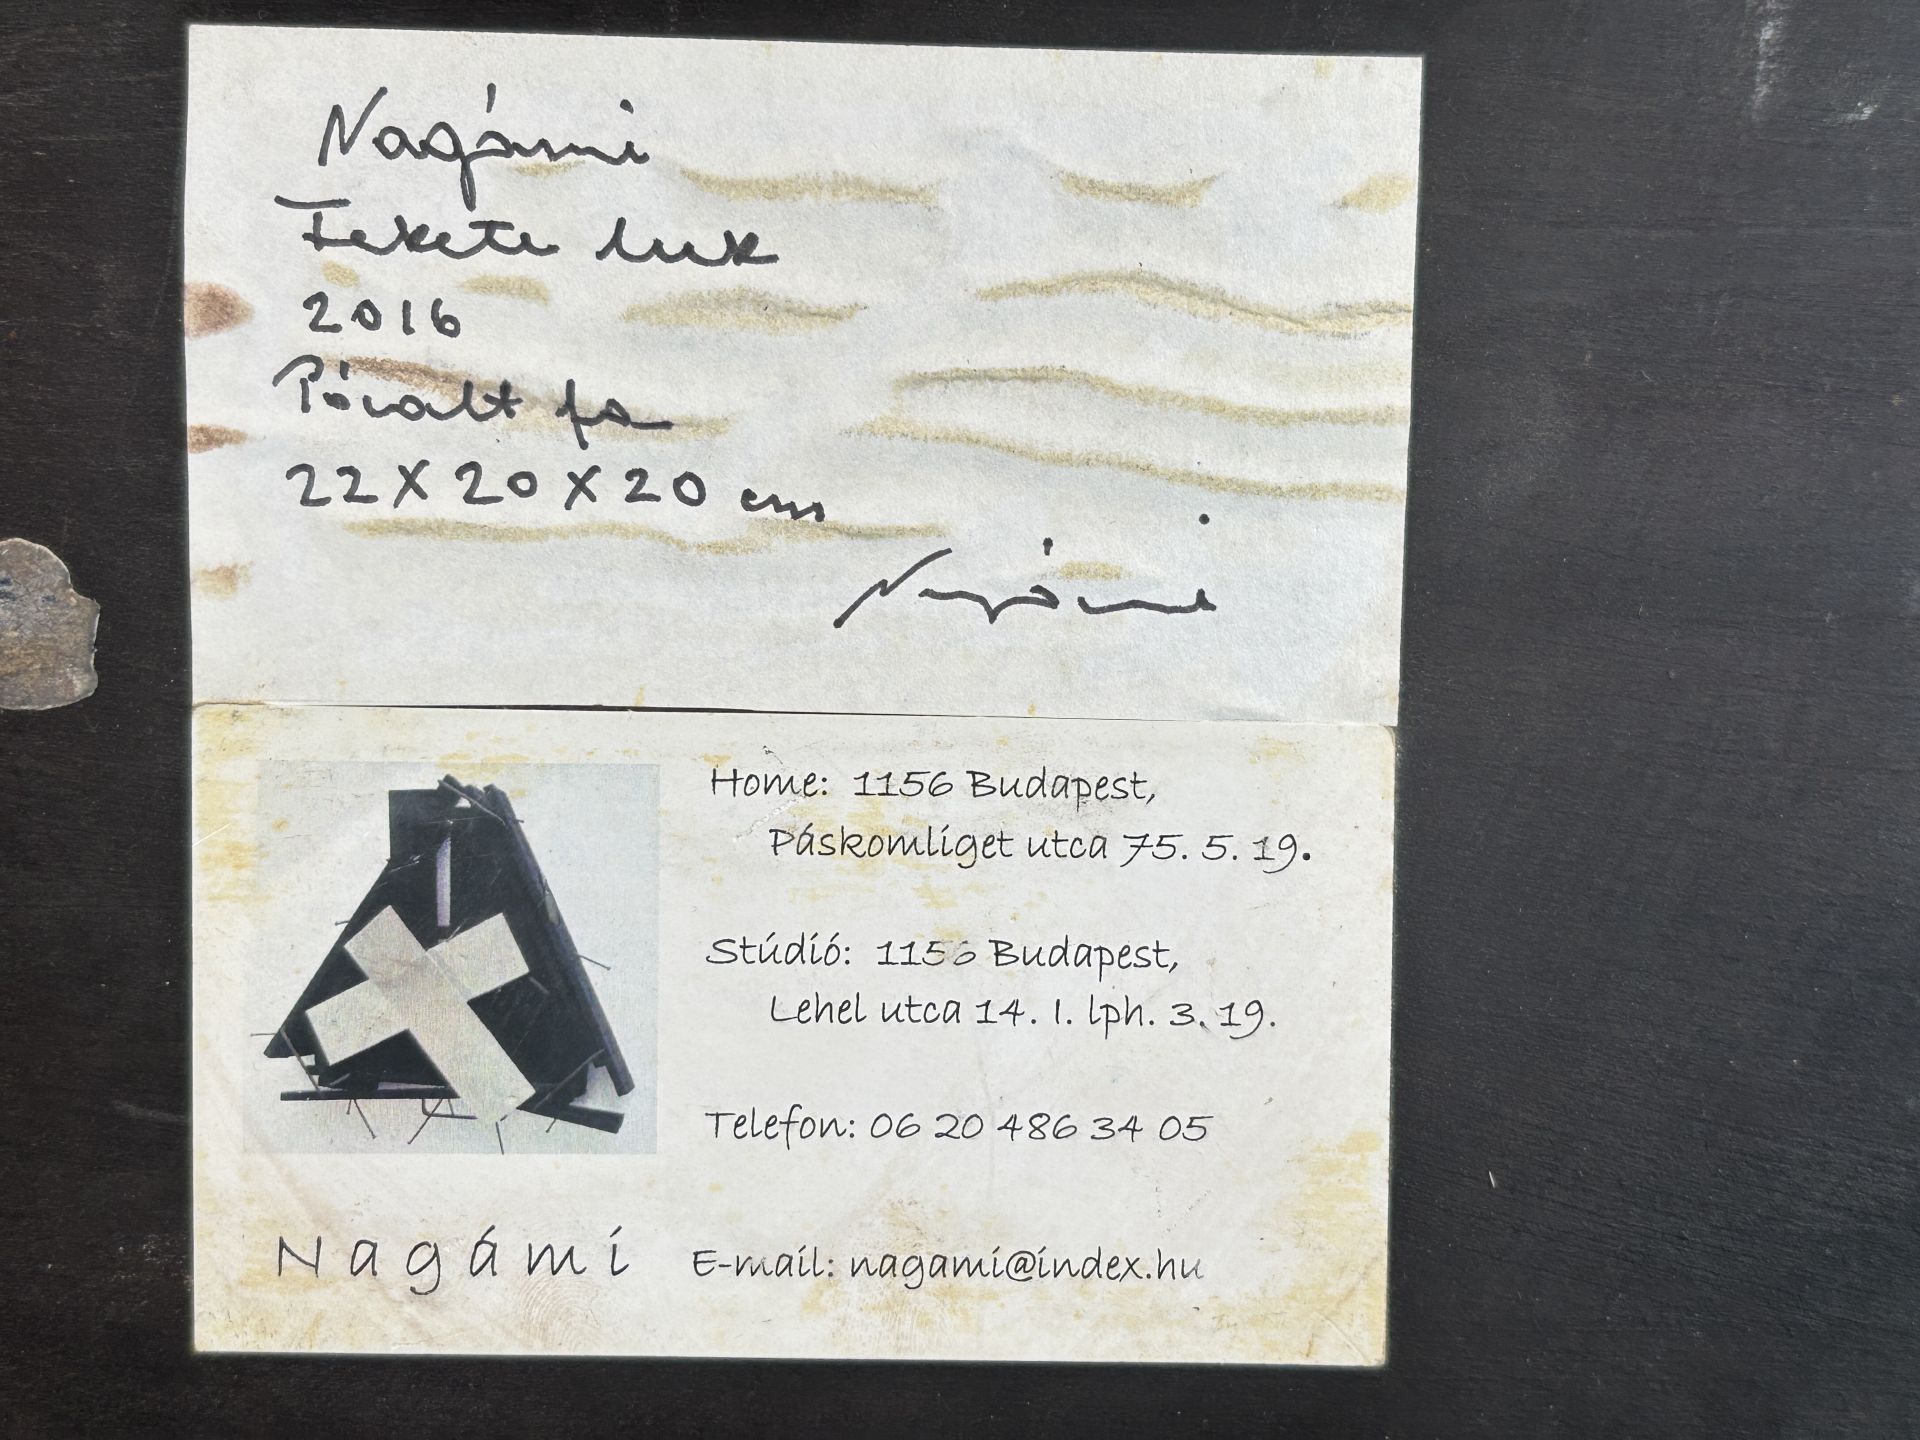 Nagámi
Fekete luk
2016
Pácolt fa
22 X 20 X 20 cm
Nagámi
Home: 1156 Budapest,
Páskomliget utca 75. 5. 19.
Stúdió: 1156 Budapest,
Lehel utca 14. I. lph. 3. 19.
Telefon: 06 20 486 34 05
Nagámi
E-mail: nagami@index.hu